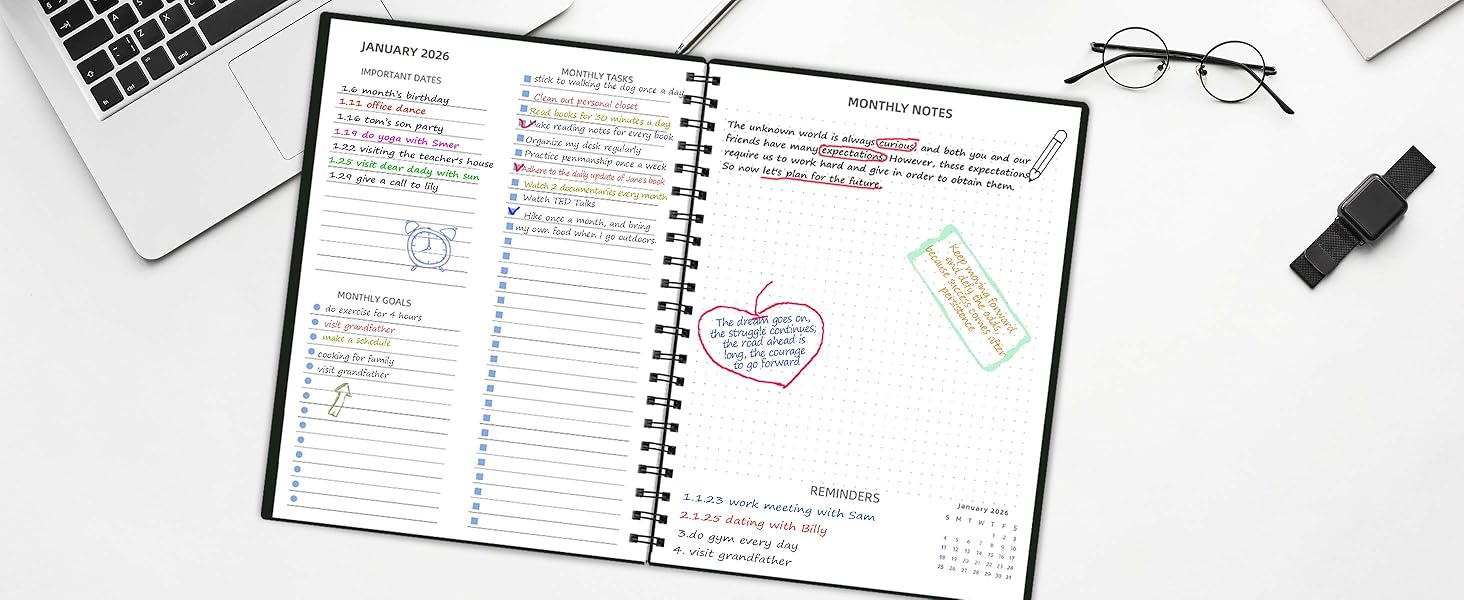 JANUARY 2026
IMPORTANT DATES
1.6 month's birthday
1.11 office dance
1.16 tom's son party
1.19 do yoga with Smer
1.22 visiting the teacher's house
1.25 visit dear dady with sun
1.29 give a call to lily
MONTHLY GOALS
do exercise for 4 hours
visit grandfather
make a schedule
cooking for family
visit grandfather
MONTHLY TASKS
stick to walking the dog once a day
Clean out personal closet
Read books for 30 minutes a day
Make reading notes for every book
Organize my desk regularly
Practice penmanship once a week
Adhere to the daily update of Jane's book
Watch 2 documentaries every month
Watch TED Talks
Hike once a month, and bring
my own food when I go outdoors.
MONTHLY NOTES
The unknown world is always curious, and both you and our
friends have many expectations. However, these expectations
require us to work hard and give in order to obtain them.
So now let's plan for the future.
Keep moving forward
and defy the odds,
because success comes after
persistence
The dream goes on,
the struggle continues,
the road ahead is
long, the courage
to go forward
REMINDERS
1.1.23 work meeting with Sam
2.1.25 dating with Billy
3.do gym every day
4. visit grandfather
January 2026
S M T W T F S
1 2 3
4 5 6 7 8 9 10
11 12 13 14 15 16 17
18 19 20 21 22 23 24
25 26 27 28 29 30 31